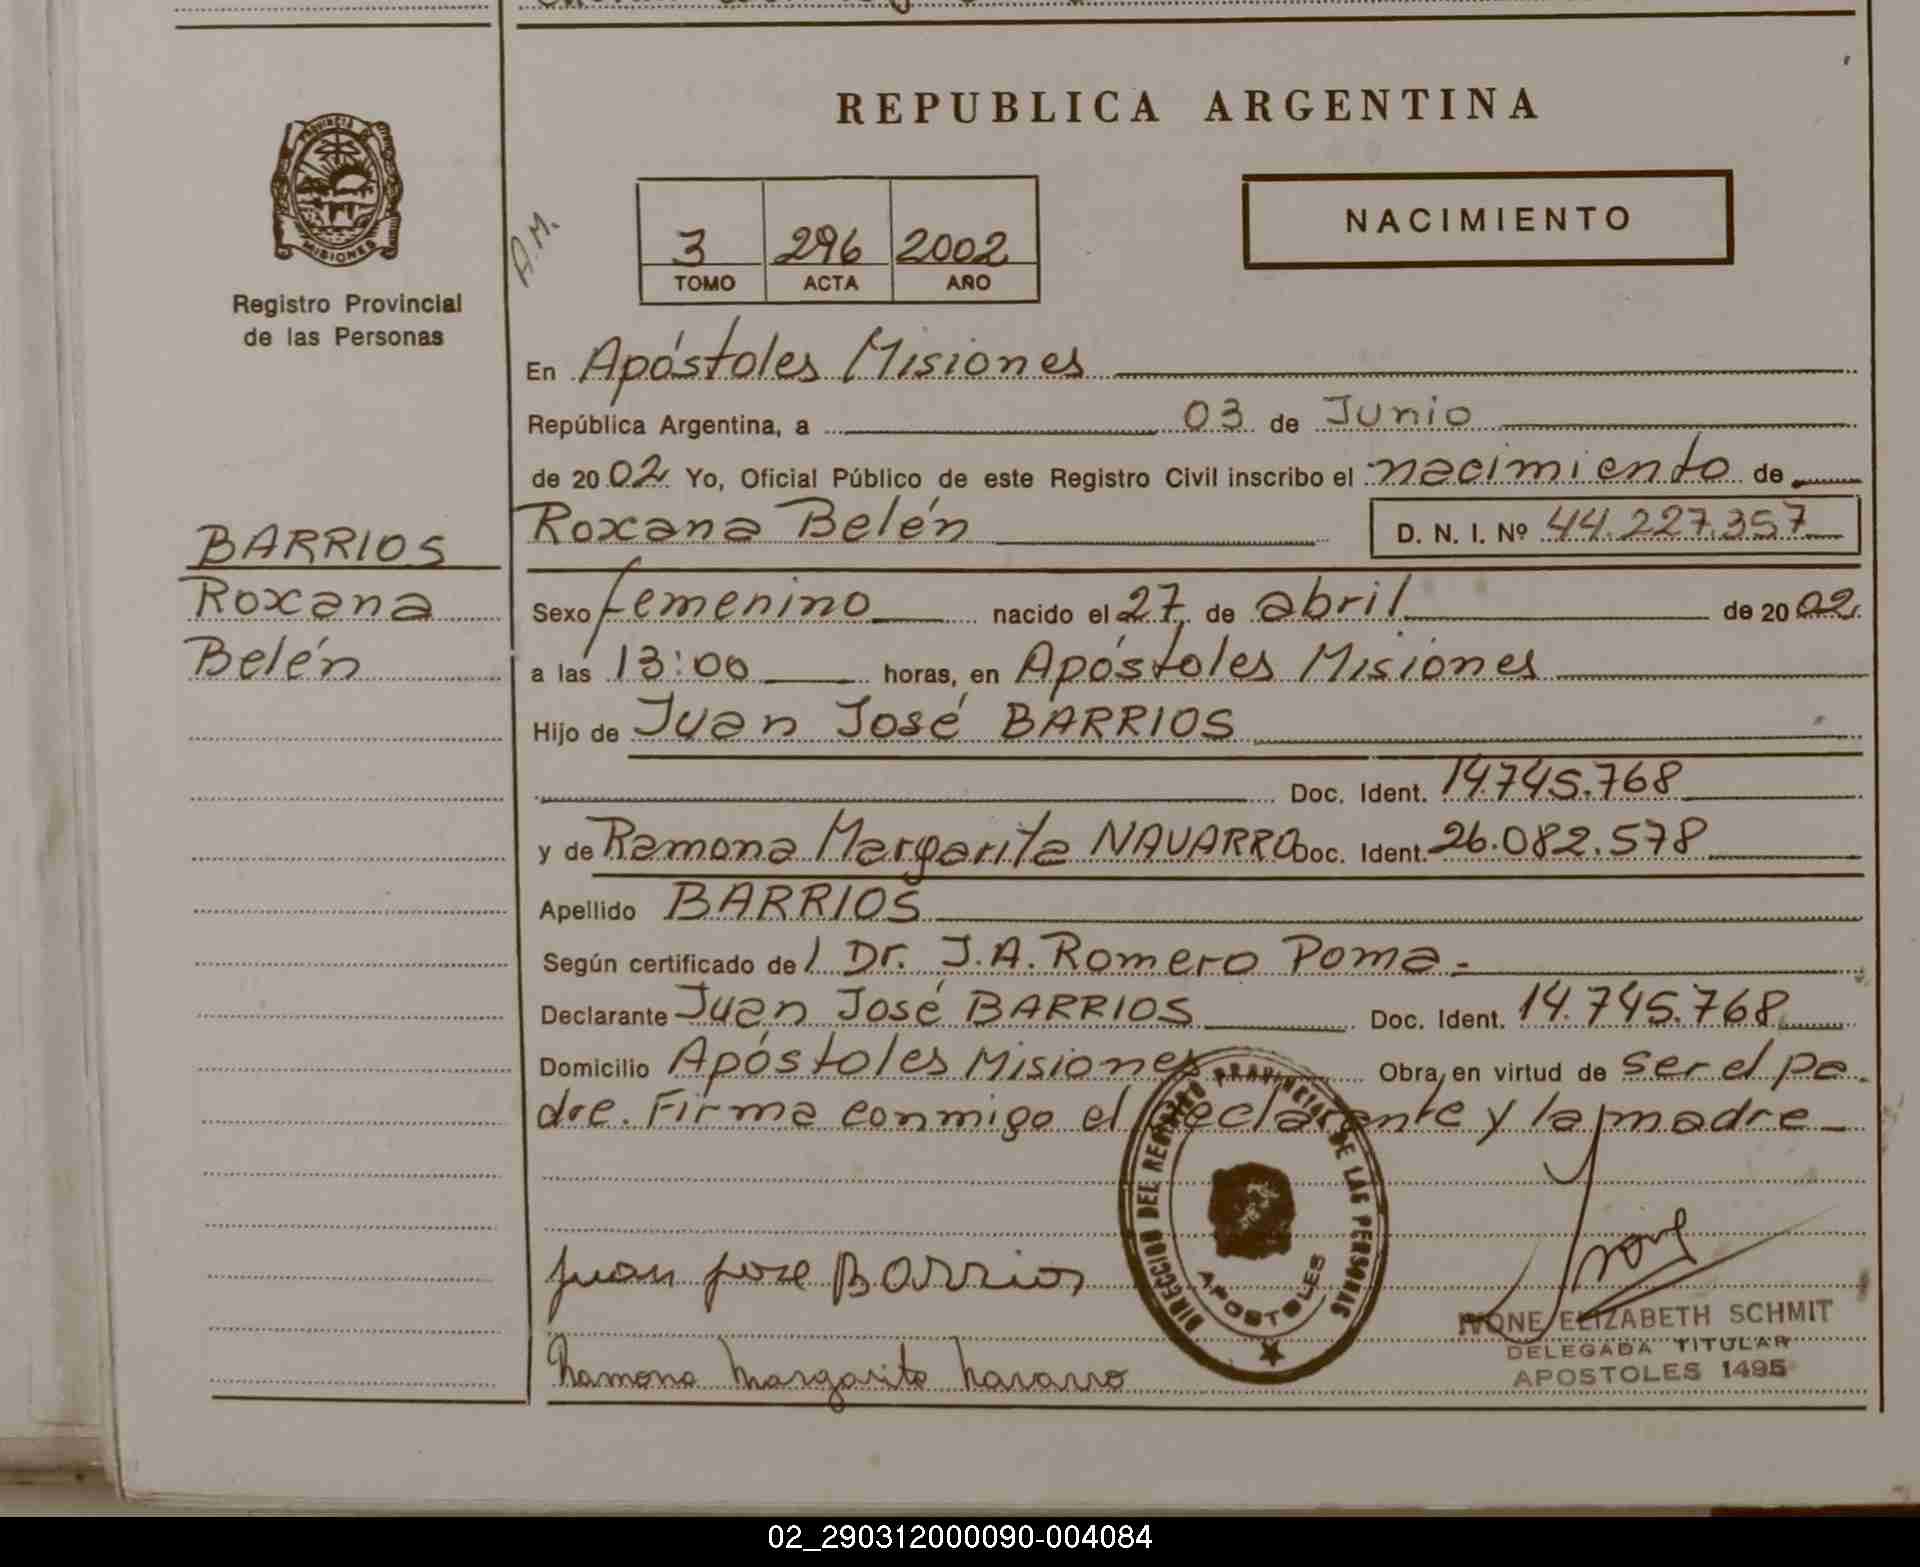 REPUBLICA ARGENTINA
PROVINCIA DE
MISIONES
Registro Provincial
de las Personas
A.M.
3 296 2002
TOMO ACTA AÑO
NACIMIENTO
En Apóstoles Misiones
República Argentina, a 03 de Junio
de 2002 Yo, Oficial Público de este Registro Civil inscribo el nacimiento de
Roxana Belén D. N. I. Nº 44.227.357
BARRIOS
Roxana
Belén
Sexo femenino nacido el 27 de abril de 2002
a las 13:00 horas, en Apóstoles Misiones
Hijo de Juan José BARRIOS
Doc. Ident. 14.745.768
y de Ramona Margarita NAVARRO Doc. Ident. 26.082.578
Apellido BARRIOS
Según certificado de l Dr. J.A. Romero Poma.
Declarante Juan José BARRIOS Doc. Ident. 14.745.768
Domicilio Apóstoles Misiones Obra, en virtud de ser el pa
dre. Firma conmigo el declarante y la madre
DIRECCION DEL REGISTRO PROVINCIAL DE LAS PERSONAS
APOSTOLES
Juan Jose BARRios
Ramona Margarita Navarro
IVONE ELIZABETH SCHMIT
DELEGADA TITULAR
APOSTOLES 1495
02_290312000090-004084